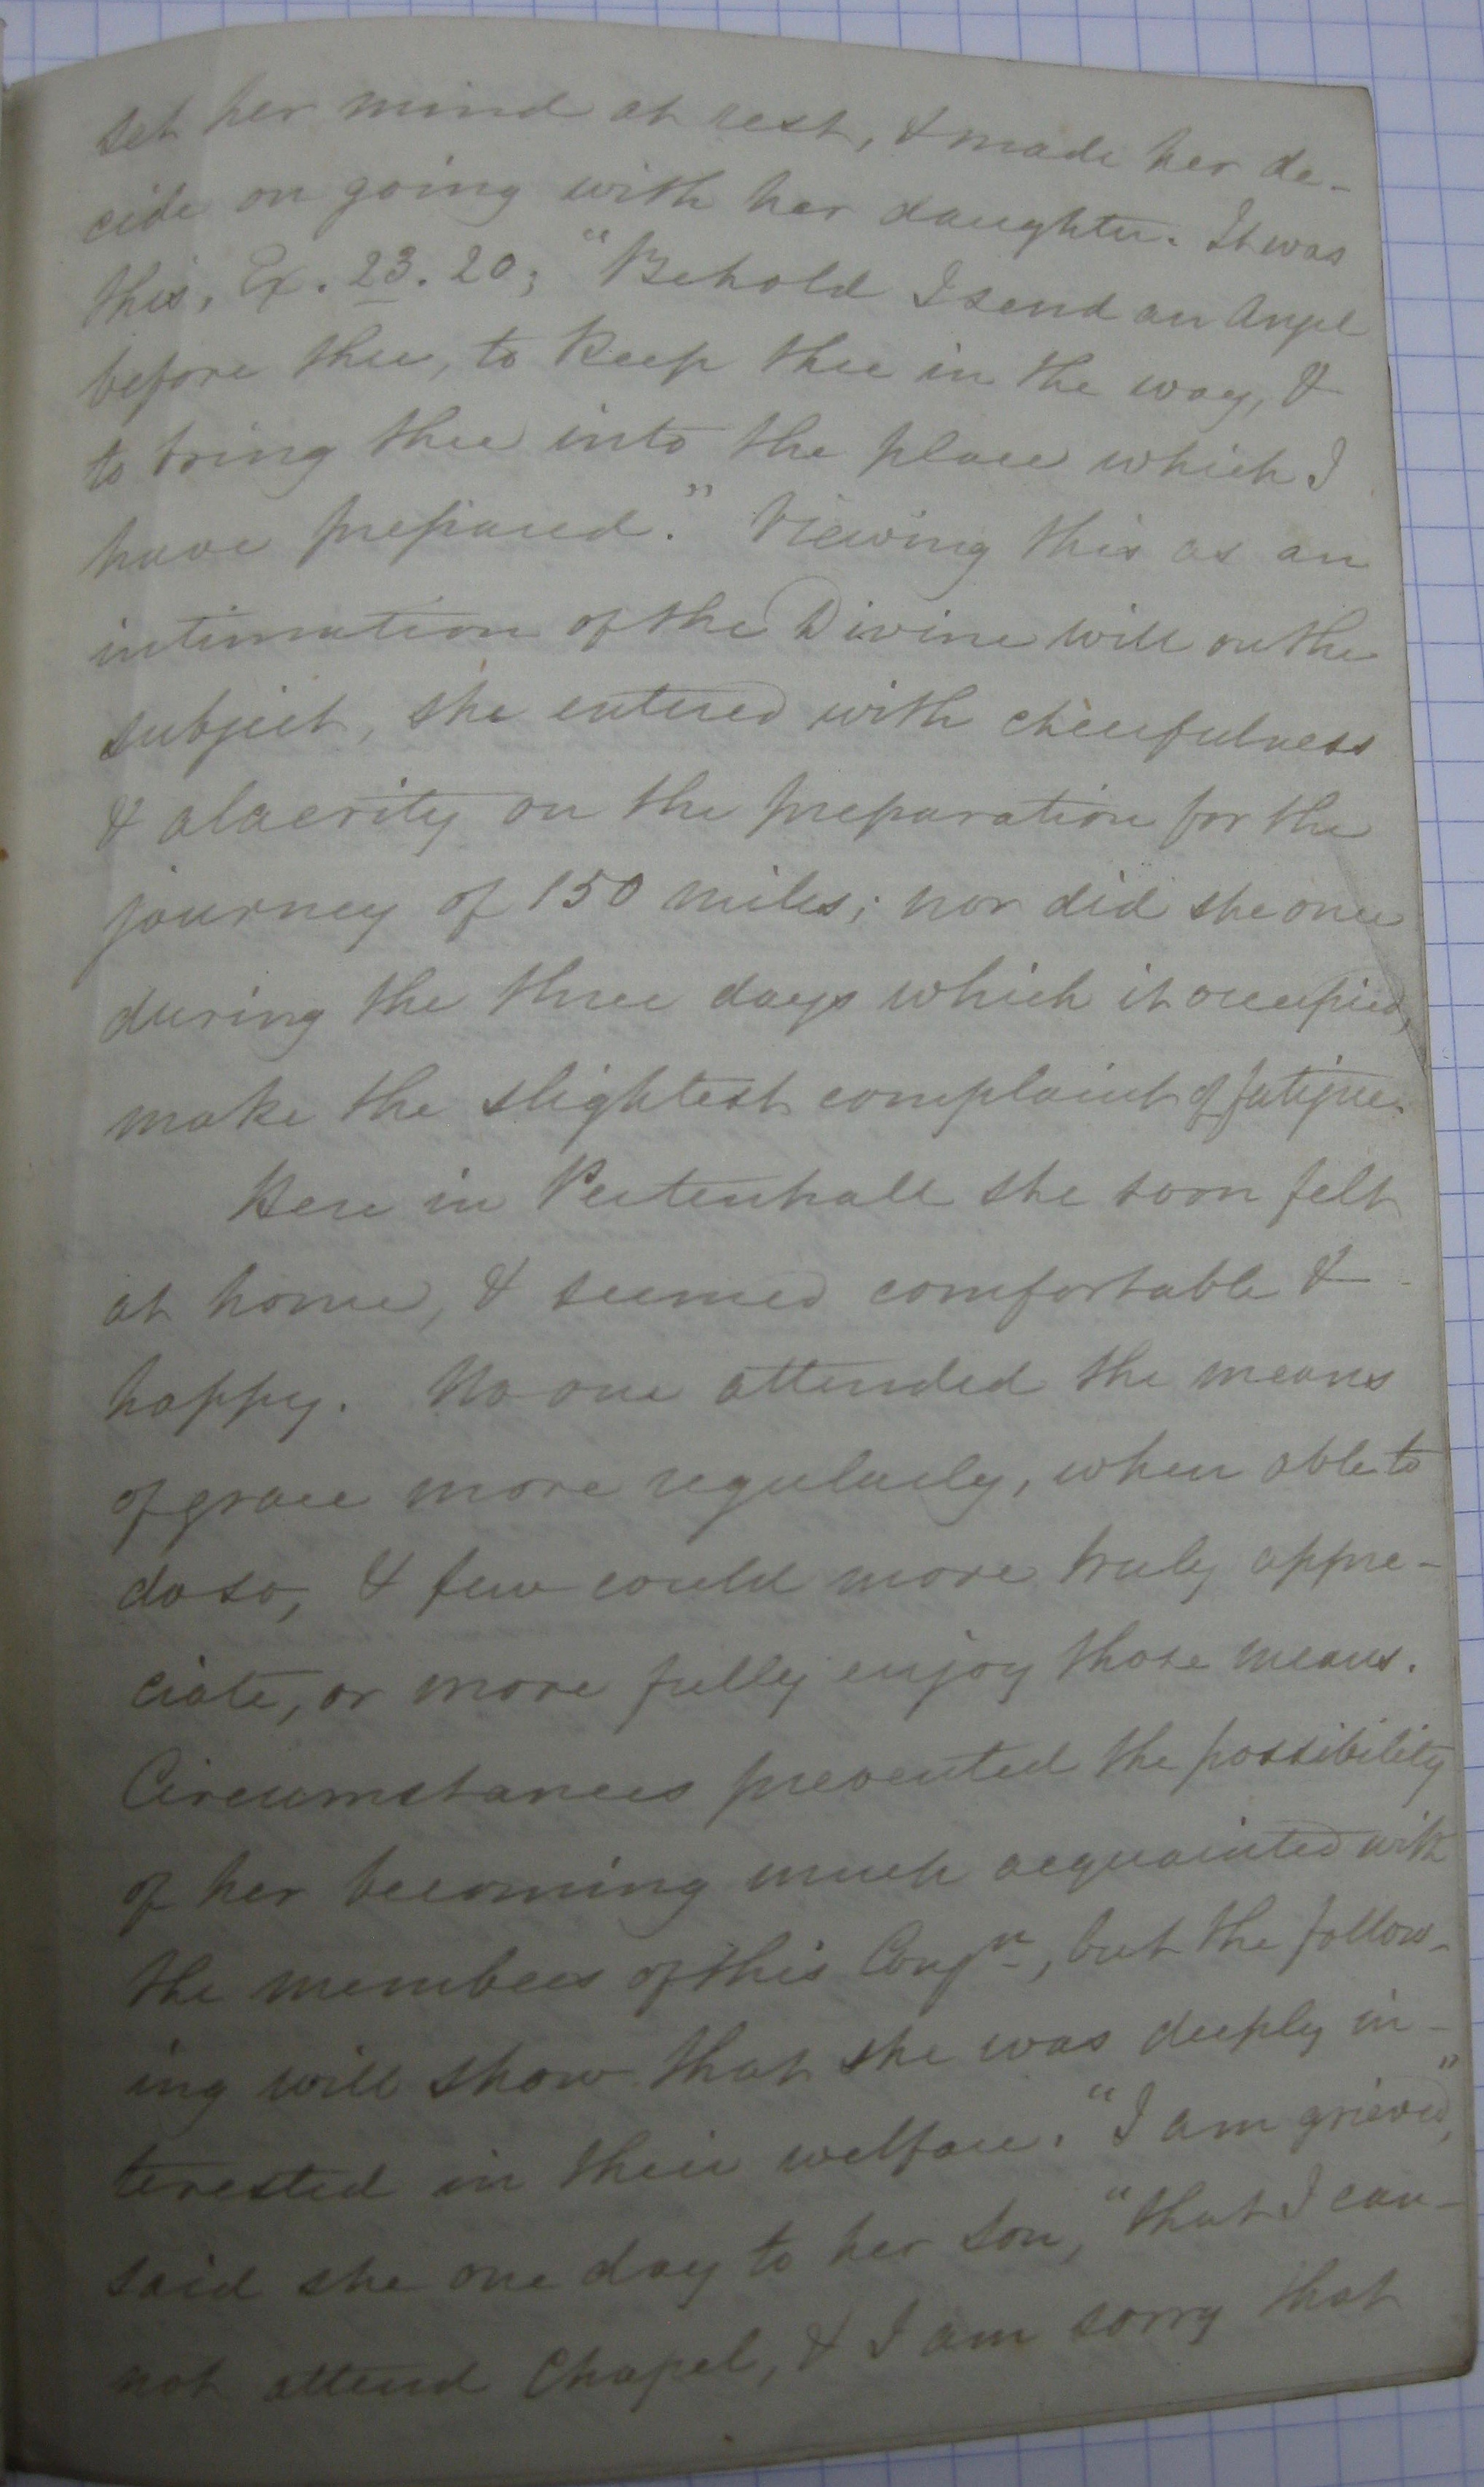 set her mind at rest, & made her de-
cide on going with her daughter. It was
this, Ex. 23. 20; "Behold I send an Angel
before thee, to keep thee in the way, &
to bring thee into the place which I
have prepared." Viewing this as an
intimation of the Divine will on the
subject, she entered with cheerfulness
& alacrity on the preparation for the
journey of 150 miles; nor did she once
during the three days which it occupied,
make the slightest complaint of fatigue.
Here in Pertenhall she soon felt
at home, & seemed comfortable &
happy. No one attended the means
of grace more regularly, when able to
do so, & few could more truly appre-
ciate, or more fully enjoy those means.
Circumstances prevented the possibility
of her becoming much acquainted with
the members of this Congn, but the follow-
ing will show that she was deeply in-
terested in their welfare. "I am grieved,"
said she one day to her son, "that I can-
not attend Chapel, & I am sorry that